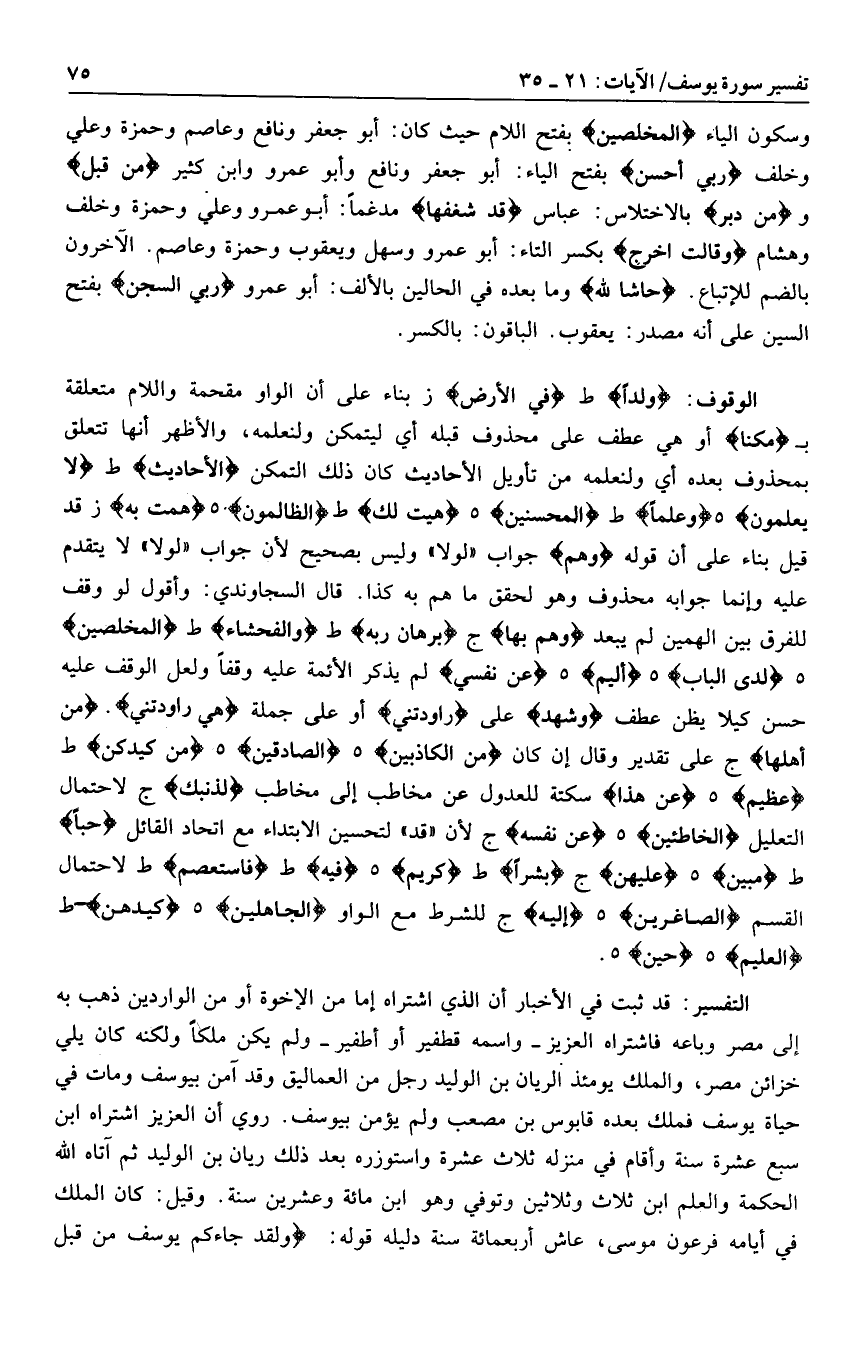 تفسير سورة يوسف/ الآيات: ٢١ ـ ٣٥ ٧٥
وسكون الياء ﴿المخلصين﴾ بفتح اللام حيث كان: أبو جعفر ونافع وعاصم وحمزة وعلي
وخلف ﴿ربي أحسن﴾ بفتح الياء: أبو جعفر ونافع وأبو عمرو وابن كثير ﴿من قبل﴾
و ﴿من دبر﴾ بالاختلاس: عباس ﴿قد شغفها﴾ مدغماً: أبو عمرو وعلي وحمزة وخلف
وهشام ﴿وقالت اخرج﴾ بكسر التاء: أبو عمرو وسهل ويعقوب وحمزة وعاصم. الآخرون
بالضم للإتباع. ﴿حاشا لله﴾ وما بعده في الحالين بالألف: أبو عمرو ﴿ربي السجن﴾ بفتح
السين على أنه مصدر: يعقوب. الباقون: بالكسر.
الوقوف: ﴿ولداً﴾ ط ﴿في الأرض﴾ ز بناء على أن الواو مقحمة واللام متعلقة
بـ ﴿مكنا﴾ أو هي عطف على محذوف قبله أي ليتمكن ولنعلمه، والأظهر أنها تتعلق
بمحذوف بعده أي ولنعلمه من تأويل الأحاديث كان ذلك التمكن ﴿الأحاديث﴾ ط ﴿لا
يعلمون﴾ ٥ ﴿وعلماً﴾ ط ﴿المحسنين﴾ ٥ ﴿هيت لك﴾ ط ﴿الظالمون﴾ ٥ ﴿همت به﴾ ز قد
قيل بناء على أن قوله ﴿وهم﴾ جواب «لولا» وليس بصحيح لأن جواب «لولا» لا يتقدم
عليه وإنما جوابه محذوف وهو لحقق ما هم به كذا. قال السجاوندي: وأقول لو وقف
للفرق بين الهمين لم يبعد ﴿وهم بها﴾ ج ﴿برهان ربه﴾ ط ﴿والفحشاء﴾ ط ﴿المخلصين﴾
٥ ﴿لدى الباب﴾ ٥ ﴿أليم﴾ ٥ ﴿عن نفسي﴾ لم يذكر الأئمة عليه وقفاً ولعل الوقف عليه
حسن كيلا يظن عطف ﴿وشهد﴾ على ﴿راودتني﴾ أو على جملة ﴿هي راودتني﴾. ﴿من
أهلها﴾ ج على تقدير وقال إن كان ﴿من الكاذبين﴾ ٥ ﴿الصادقين﴾ ٥ ﴿من كيدكن﴾ ط
﴿عظيم﴾ ٥ ﴿عن هذا﴾ سكتة للعدول عن مخاطب إلى مخاطب ﴿لذنبك﴾ ج لاحتمال
التعليل ﴿الخاطئين﴾ ٥ ﴿عن نفسه﴾ ج لأن «قد» لتحسين الابتداء مع اتحاد القائل ﴿حباً﴾
ط ﴿مبين﴾ ٥ ﴿عليهن﴾ ج ﴿بشراً﴾ ط ﴿كريم﴾ ٥ ﴿فيه﴾ ط ﴿فاستعصم﴾ ط لاحتمال
القسم ﴿الصاغرين﴾ ٥ ﴿إليه﴾ ج للشرط مع الواو ﴿الجاهلين﴾ ٥ ﴿كيدهن﴾ ط
﴿العليم﴾ ٥ ﴿حين﴾ ٥.
التفسير: قد ثبت في الأخبار أن الذي اشتراه إما من الإخوة أو من الواردين ذهب به
إلى مصر وباعه فاشتراه العزيز ـ واسمه قطفير أو أطفير ـ ولم يكن ملكاً ولكنه كان يلي
خزائن مصر، والملك يومئذ الريان بن الوليد رجل من العماليق وقد آمن بيوسف ومات في
حياة يوسف فملك بعده قابوس بن مصعب ولم يؤمن بيوسف. روي أن العزيز اشتراه ابن
سبع عشرة سنة وأقام في منزله ثلاث عشرة واستوزره بعد ذلك ريان بن الوليد ثم آتاه الله
الحكمة والعلم ابن ثلاث وثلاثين وتوفي وهو ابن مائة وعشرين سنة. وقيل: كان الملك
في أيامه فرعون موسى، عاش أربعمائة سنة دليله قوله: ﴿ولقد جاءكم يوسف من قبل